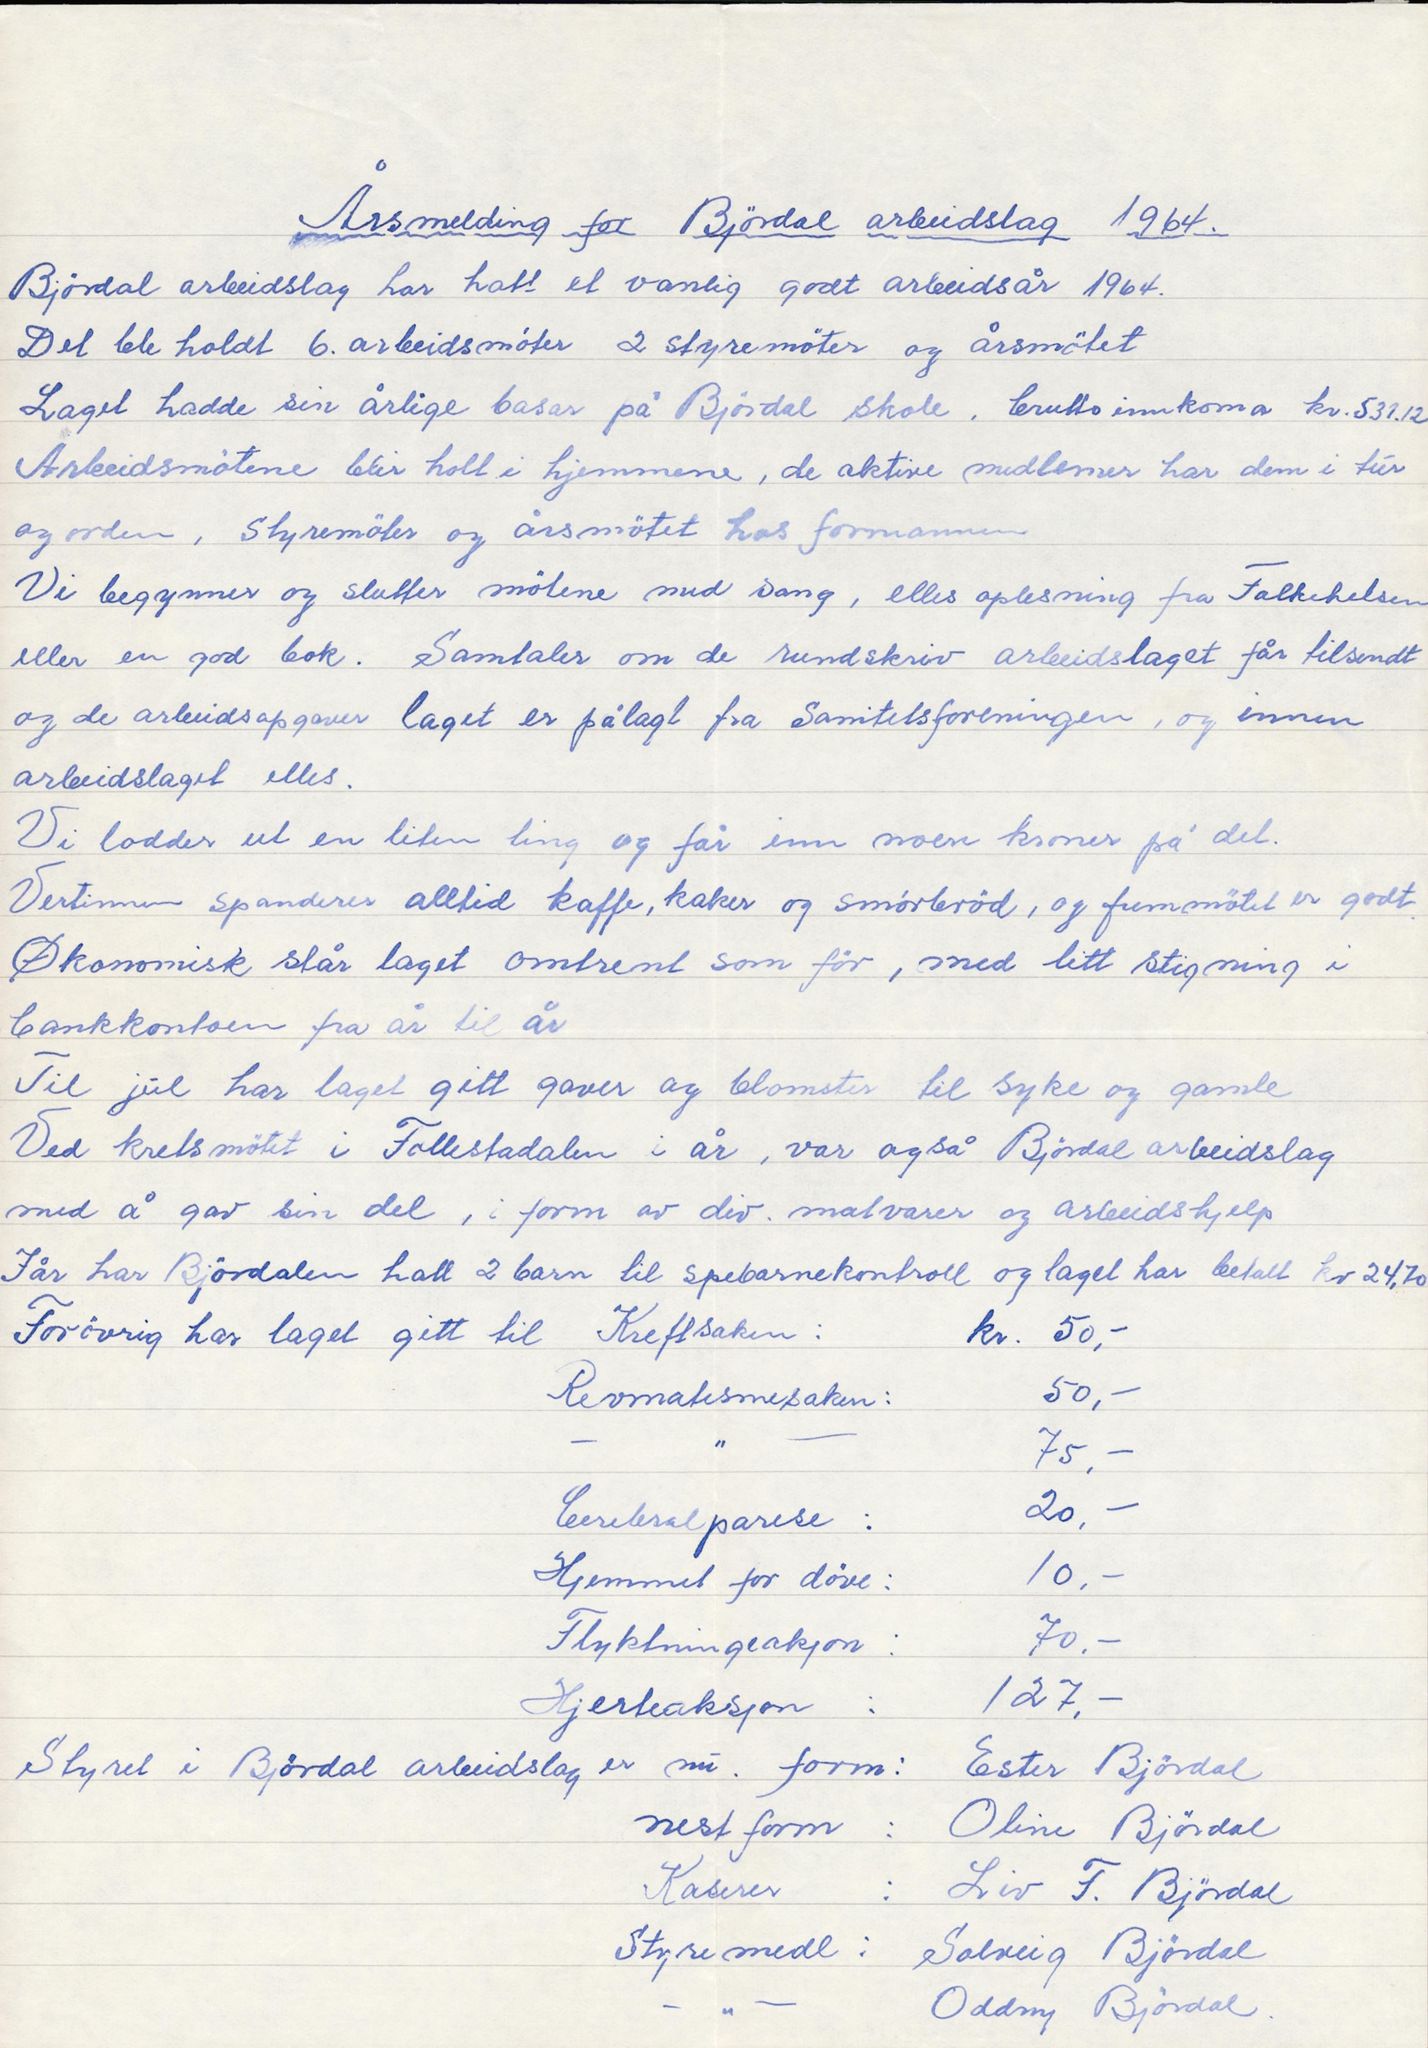 Årsmelding for Björdal arbeidslag 1964.
Björdal arbeidslag har hatt et vanlig godt arbeidsår 1964.
Det ble holdt 6. arbeidsmöter 2 styremöter og årsmötet
Laget hadde sin årlige basar på Björdal skole, brutto innkoma kr. 531.12
Arbeidsmötene blir holt i hjemmene, de aktive medlemer har dem i tur
og orden, Styremöter og årsmötet hos formannen
Vi begynner og slutter mötene med sang, elles oplesning fra Folkehelsen
eller en god bok. Samtaler om de rundskriv arbeidslaget får tilsendt
og de arbeidsopgaver laget er pålagt fra Sanitetsforeningen, og innen
arbeidslaget elles.
Vi lodder ut en liten ting og får inn noen kroner på det.
Vertinnen spanderer alltid kaffe, kaker og smörbröd, og fremmötet er godt.
Økonomisk står laget omtrent som för, med litt stigning i
bankkontoen fra år til år
Til jul har laget gitt gaver og blomster til syke og gamle
Ved kretsmötet i Follestadalen i år, var også Björdal arbeidslag
med å gav sin del, i form av div. matvarer og arbeidshjelp
I år har Björdalen hatt 2 barn til spebarnekontroll og laget har betalt kr 24,70
Forövrig har laget gitt til Kreftsaken: kr. 50,-
Revmatismesaken: 50,-
— " — 75,-
Cerebral parese : 20,-
Hjemmet for döve: 10,-
Flyktningeakjon : 70,-
Hjerteaksjon : 127,-
Styret i Björdal arbeidslag er nu. form: Ester Björdal
nest form : Oline Björdal
Kaserer : Liv F. Björdal
Styremedl : Solveig Björdal
- " - Oddny Björdal.